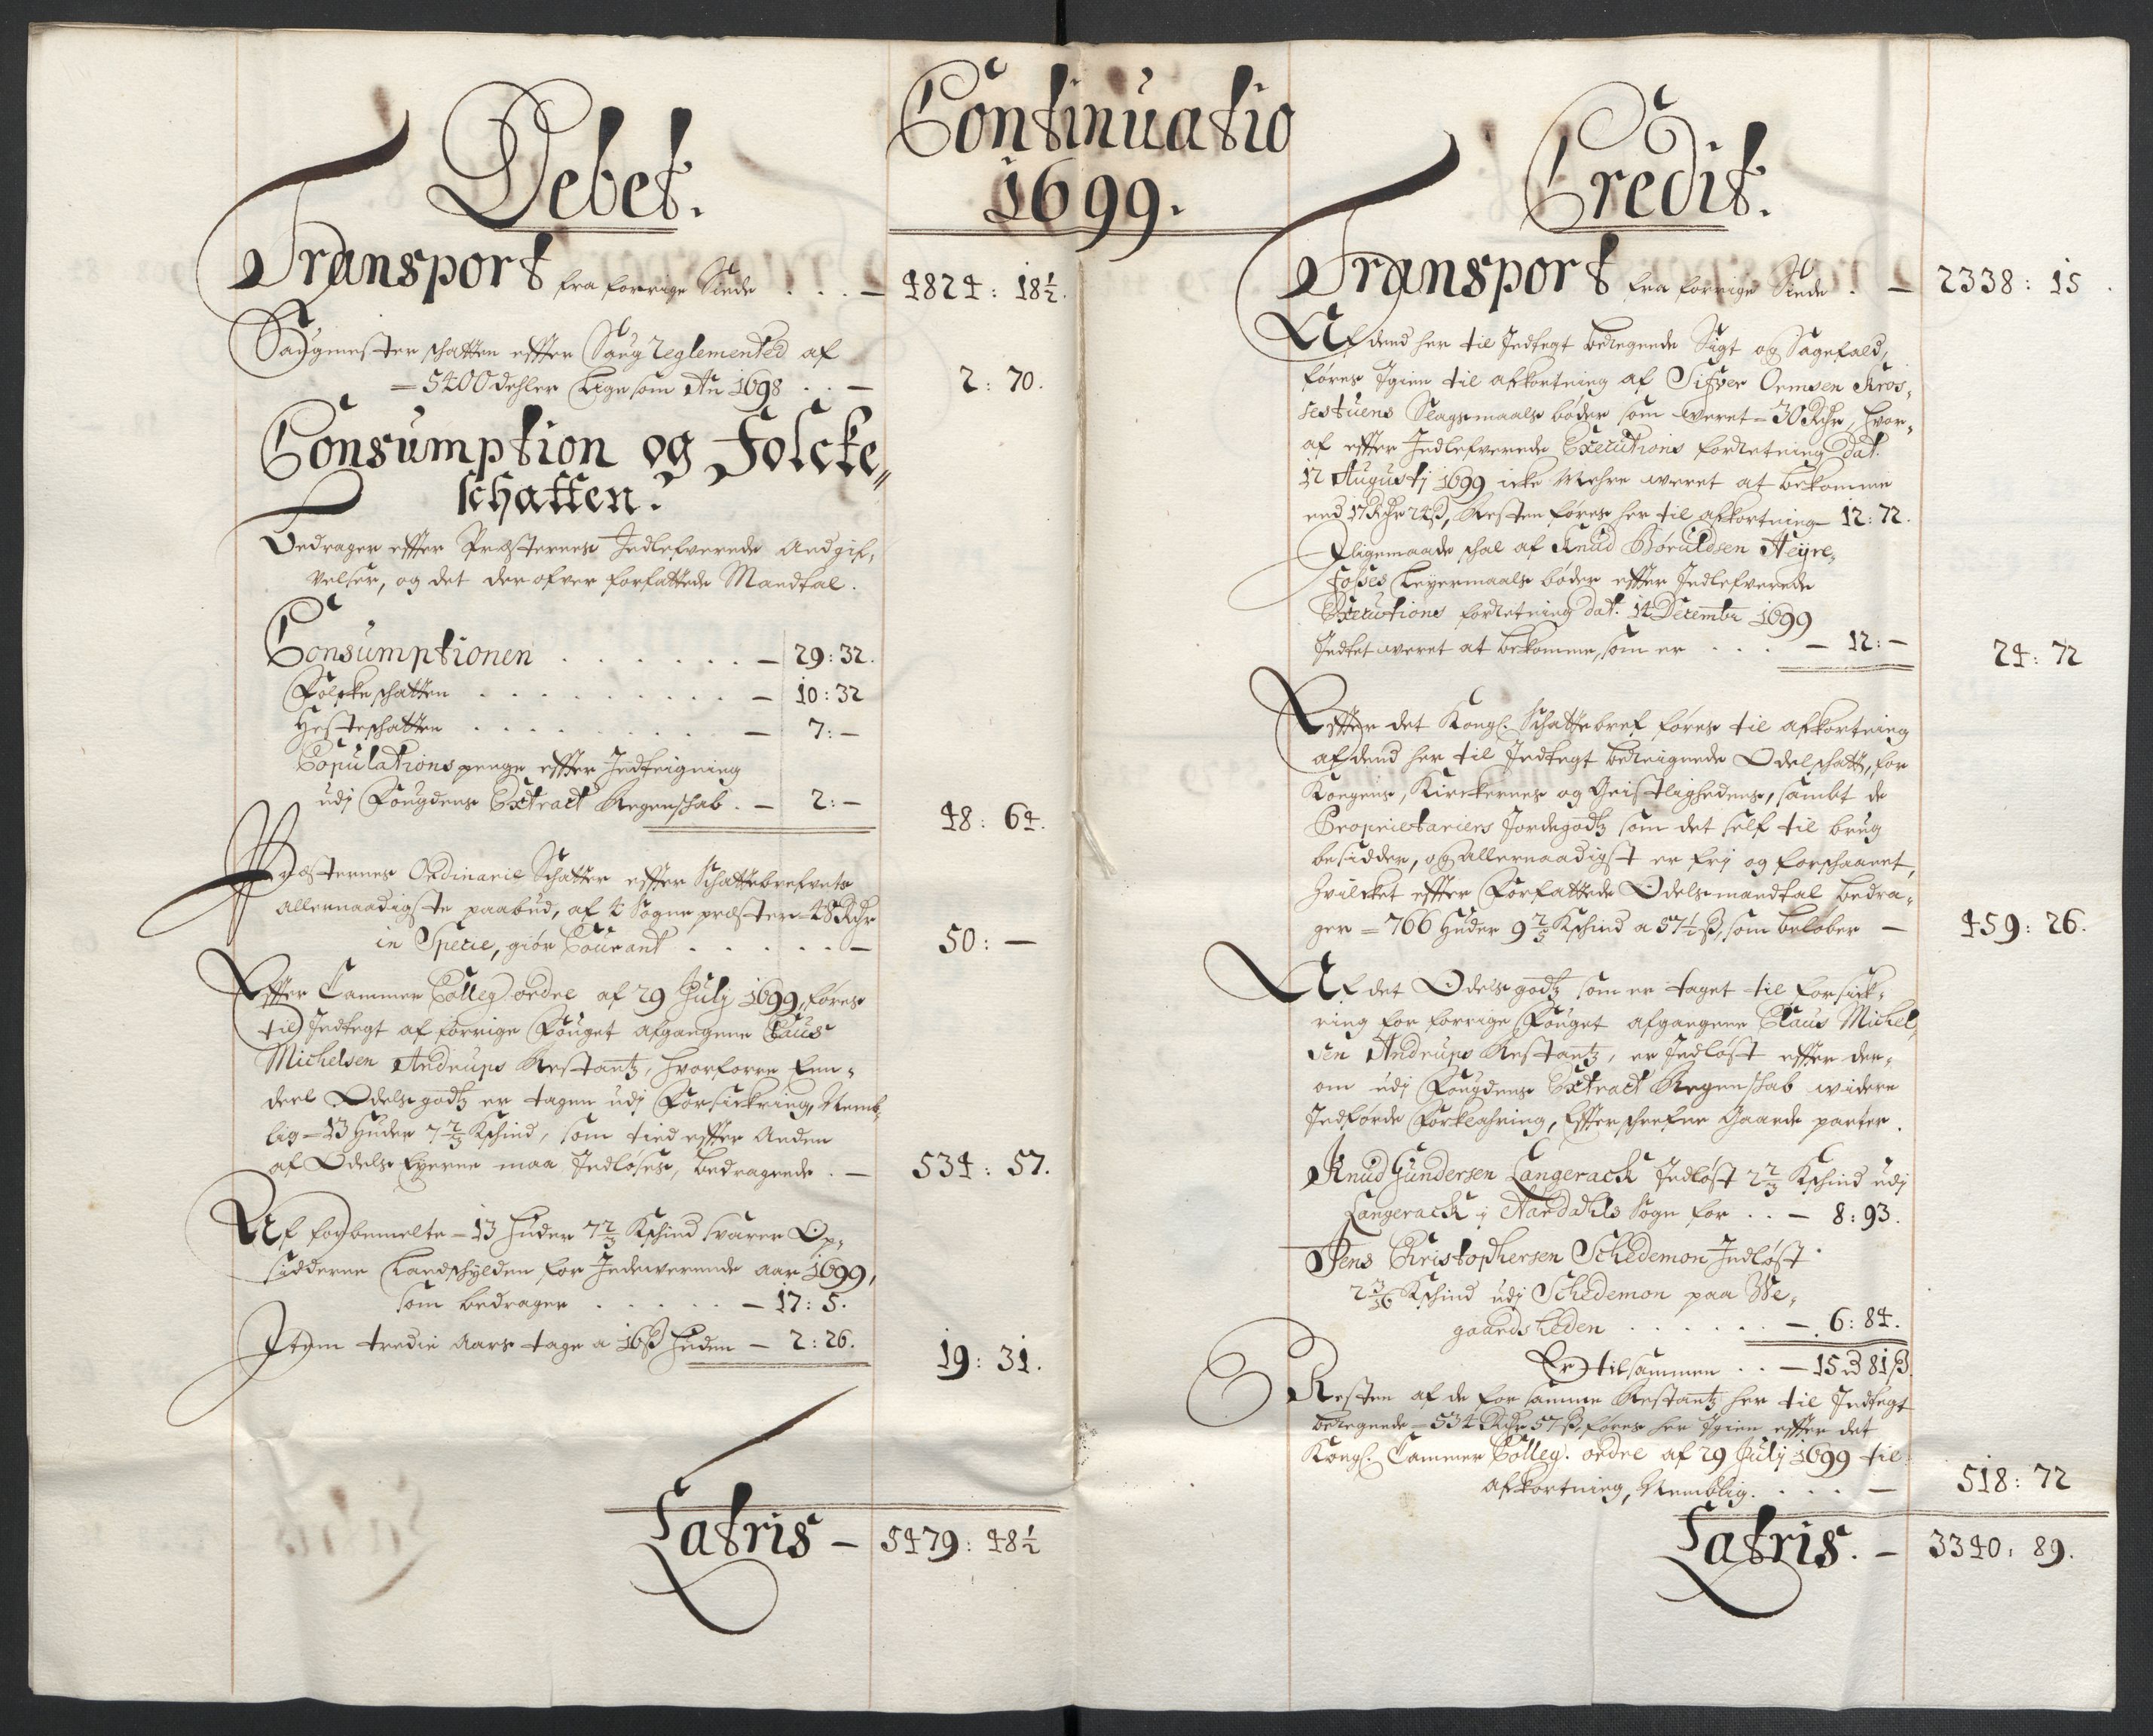 Continuatio
1699.
Debet.
Transport fra forrige Siide . . . — 4824: 18½.
Saugmester schatten effter Saug Reglemented af
= 5400 dehler Lige som Ao 1698 . . — 2: 70.
Consumption og Folcke,,
schatten.
Bedrager effter Præsternes Indlefverede Andgif,
velser, og det der ofver forfattede Mandtal.
Consumptionen . . . . . . . — 29: 32.
Folcke schatten . . . . . . . . . . — 10: 32
Hesteschatten . . . . . . . . . — 7: —
Copulations penge effter Indteigning
udj Fougdens Extract Regenschab . — 2: —
48: 64.
Præsternes Ordinarie Schatter effter Schattebrefvets
allernaadigste paabud, af 4 Sogne præster = 48 Rdr
in Specie, giör Courant . . . . . . — 50: —
Effter Cammer Colleg: ordre af 29 Julj 1699, föres
til Indtegt af forrige Fouget afgangene Claus
Michelsen Andrups Restantz, hvorforre Een,
deel Odels godtz er tagen udj Forsickring, Nemb,
lig = 13 Huder 7⅔ Kschind, som tied effter Anden
af Odels Eyerne maa Indlöses, bedragende . — 534: 57.
Af forbemelte = 13 Huder 7⅔ Kschind svarer Op,
sidderne Landschylden for Indeverende aar 1699,
som bedrager . . . . . . — 17: 5.
Item tredie Aars tage a 16 β Huden — 2: 26.
19: 31.
Latris — 5479: 48½
Credit.
Transport fra forrige Siide . — 2338: 15.
Af dend her til Indtegt beregnede Sigt og Sagefald,
föres Igien til afkortning af Sifver Ormsen Kros,
sestuens Slagsmaals böder som veret = 30 Rdr, hvor,
af effter Indlefverede Executions forretning dat.
12 Augustj 1699 icke Mehre veret at bekomme
end 17 Rdr 24 β, Resten föres her til afkortning 12: 72.
Iligemaade schal af KnudBöruldsen Heyre,
fosses Leyermaals böder effter Indlefverede
Executions forretning dat. 14 Decembr 1699
Indtet veret at bekomme, som er . . . . — 12: —
24: 72
Effter det Kongl. Schattebref föres til afkortning
af dend her til Indtegt bereignede Odelschatt, for
Kongens, Kirckernes og Geistlighedens, sambt de
Proprietariers Jordegodtz som det self til brug
besidder, og allernaadigst er frj og forschaanet,
hvilcket effter Forfattede Odels mandtal bedra,
ger = 766 Huder 9⅖ Kschind a 57½ β, som belöber — 459: 26.
Af det Odels godtz som er taget til forsick,
ring for forrige Fouget afgangene Claus Michel,
sen Andrups Restantz, er Indlöst effter der,
om udj Fougdens Extract Regenschab videre
Indförde Forklahring, Effterschrefne Gaarde parter.
Knud Gundersen Langerack Indlöst 2⅔ Kschind udj
Langerack i Aardahls Sogn for . . — 8: 93.
Jens Christophersen Schedemon Indlöst
2 3/16 Kschind udj Schedemon paa We,
gaardsheden . . . . . . — 6: 84.
Er tilsammen . . — 15 Rd 81 β
Resten af de for samme Restantz her til Indtegt
beregnede = 534 Rdr 57 β, föres her Igien effter det
Kongl. Cammer Colleg. ordre af 29 Julj 1699 til
afkortning, Nemblig . . . . — 518: 72
Latris. — 3340: 89.